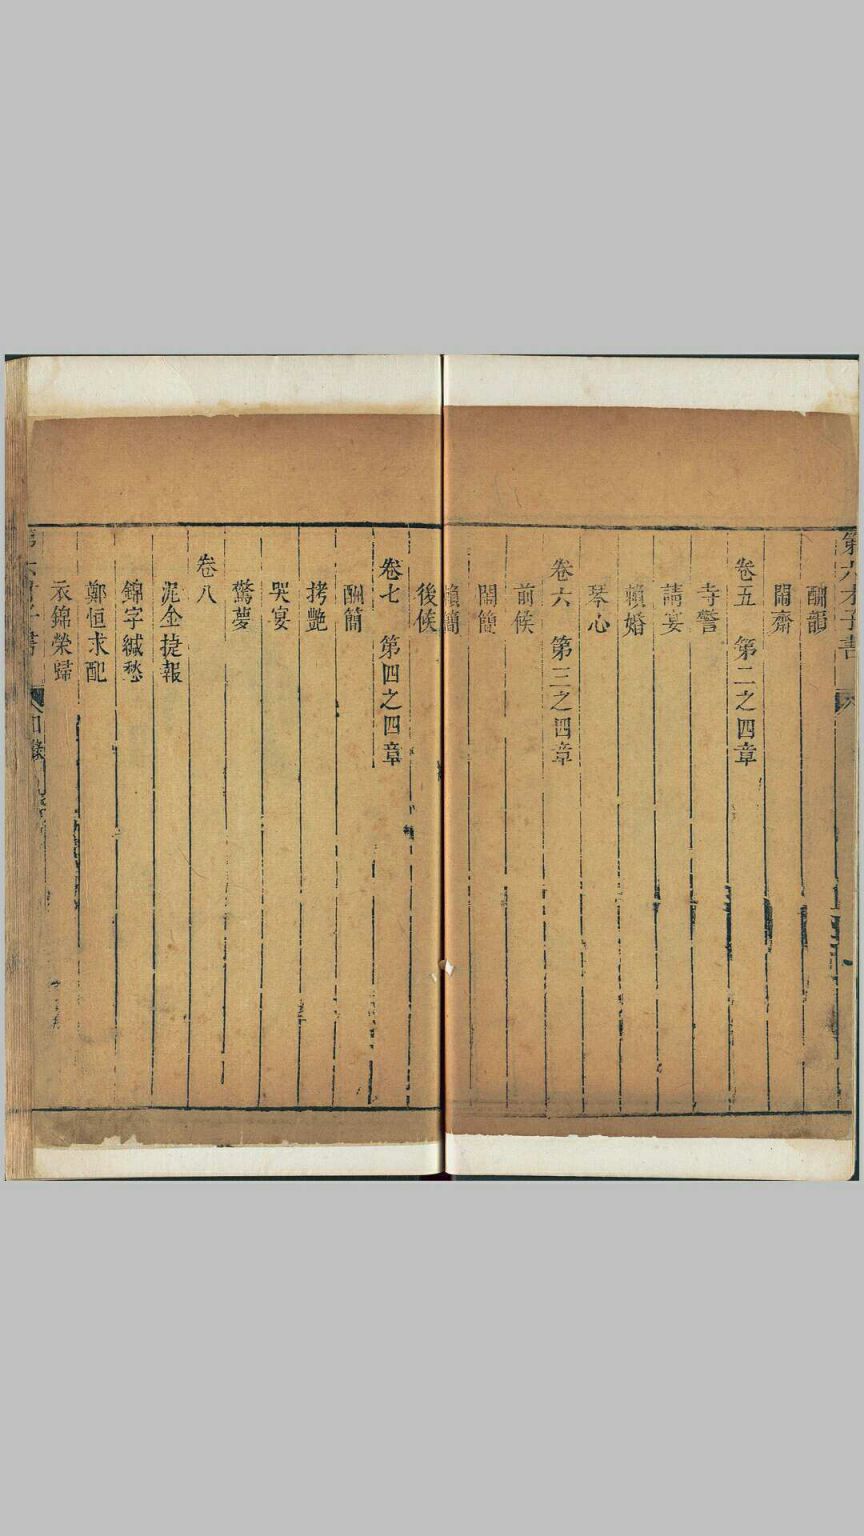 第六才子書
酬韻
鬧齋
卷五 第二之四章
寺警
請宴
賴婚
琴心
卷六 第三之四章
前候
鬧簡
賴簡
後候
卷七 第四之四章
酬簡
拷艷
哭宴
驚夢
卷八
泥金捷報
錦字緘愁
鄭恒求配
衣錦榮歸
第六才子書 目錄